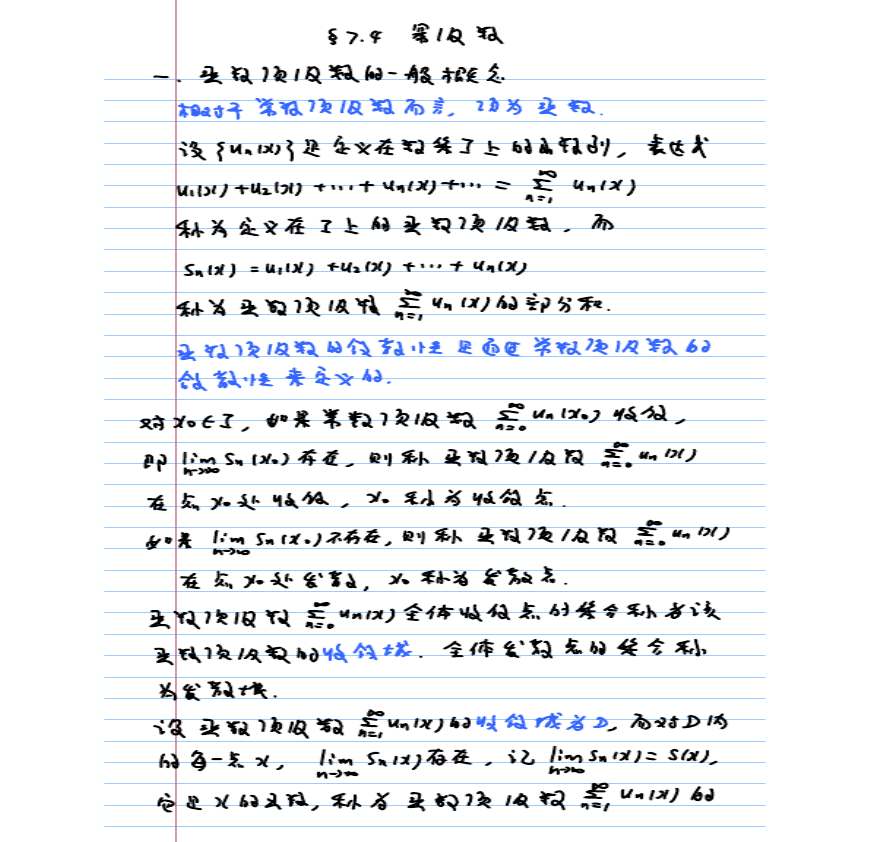 §7.4 幂级数
一、函数项级数的一般概念
相对于常数项级数而言，项为函数.
设{uₙ(x)}是定义在数集I上的函数列，表达式
u₁(x)+u₂(x)+⋯+uₙ(x)+⋯ = ∑_{n=1}^{∞} uₙ(x)
称为定义在I上的函数项级数，而
Sₙ(x) = u₁(x)+u₂(x)+⋯+uₙ(x)
称为函数项级数 ∑_{n=1}^{∞} uₙ(x)的部分和.
函数项级数的敛散性是通过常数项级数的
敛散性来定义的.
对x₀∈I，如果常数项级数 ∑_{n=0}^{∞} uₙ(x₀) 收敛，
即 lim_{n→∞} Sₙ(x₀)存在，则称函数项级数 ∑_{n=0}^{∞} uₙ(x)
在点x₀处收敛，x₀称为收敛点.
如果 lim_{n→∞} Sₙ(x₀)不存在，则称函数项级数 ∑_{n=0}^{∞} uₙ(x)
在点x₀处发散，x₀称为发散点.
函数项级数 ∑_{n=0}^{∞} uₙ(x)全体收敛点的集合称为该
函数项级数的收敛域.全体发散点的集合称
为发散域.
设函数项级数 ∑_{n=1}^{∞} uₙ(x)的收敛域为D，而对D内
的每一点x，lim_{n→∞} Sₙ(x)存在，记 lim_{n→∞} Sₙ(x)=S(x)，
它是x的函数，称为函数项级数 ∑_{n=1}^{∞} uₙ(x)的